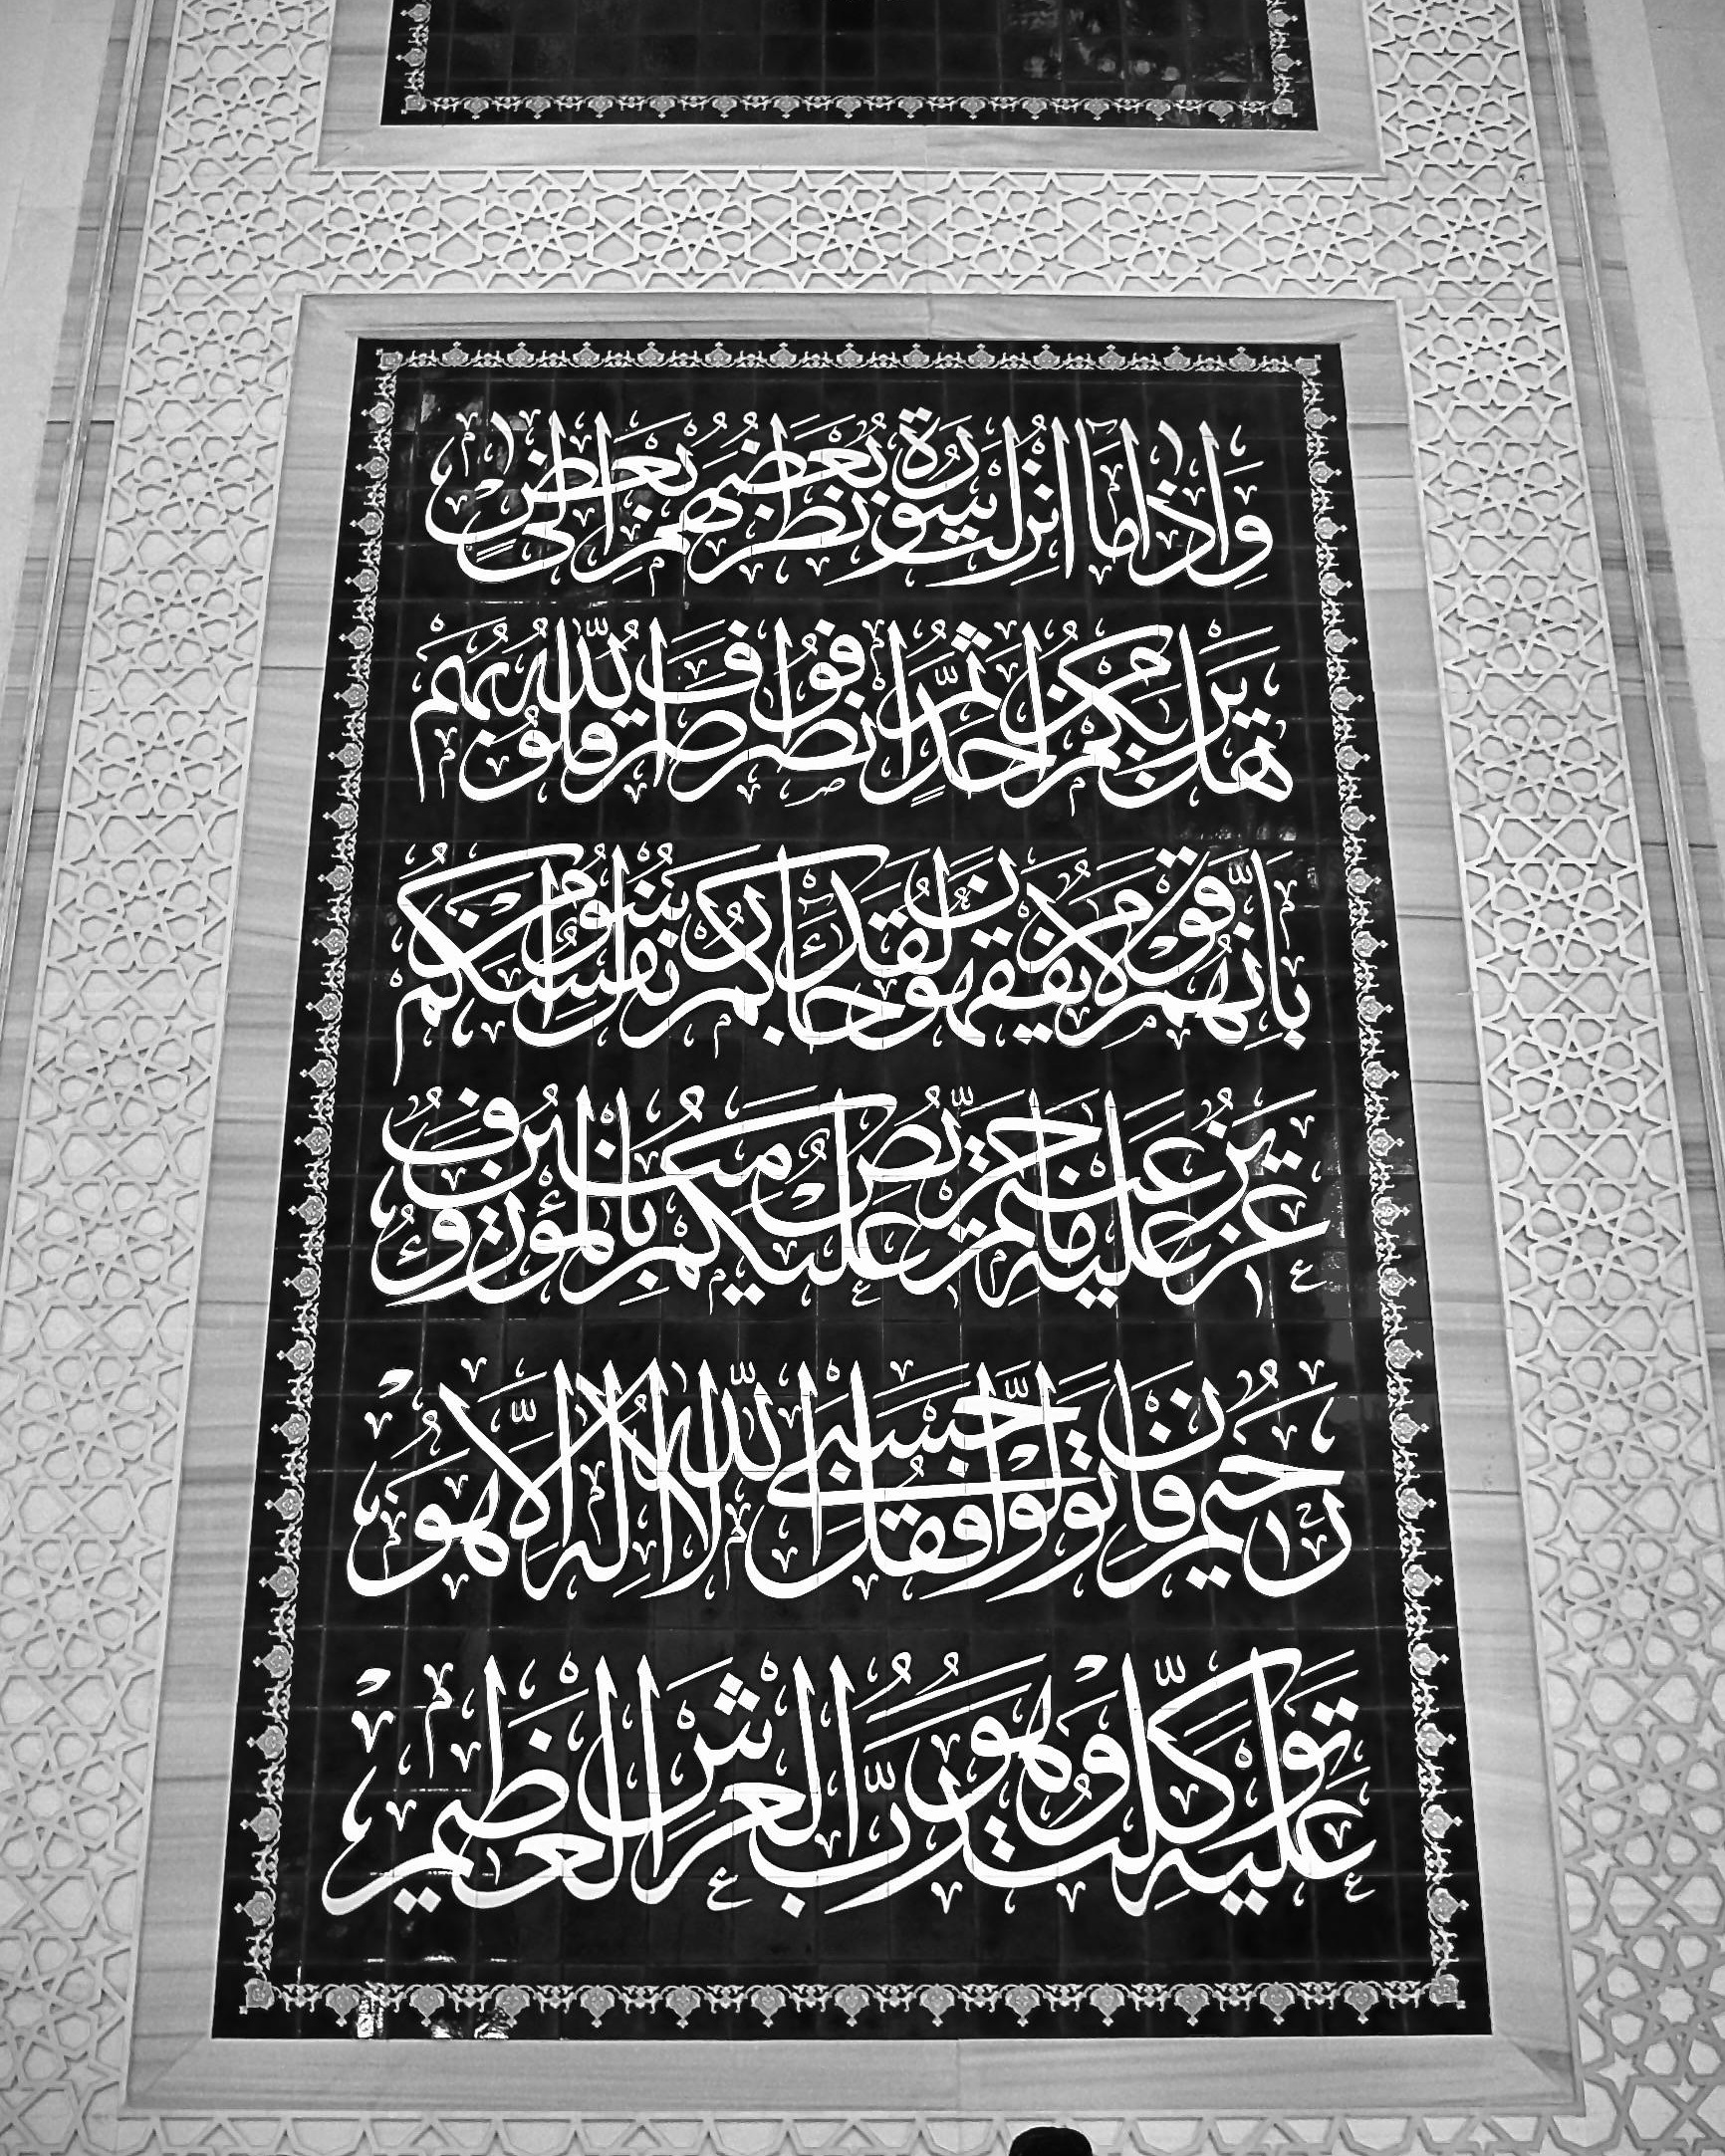 وَإِذَا مَا أُنْزِلَتْ سُورَةٌ نَظَرَ بَعْضُهُمْ إِلَى بَعْضٍ
هَلْ يَرٰيكُمْ مِنْ أَحَدٍ ثُمَّ انْصَرَفُوا صَرَفَ اللّٰهُ قُلُوبَهُمْ
بِأَنَّهُمْ قَوْمٌ لَا يَفْقَهُونَ لَقَدْ جَاءَكُمْ رَسُولٌ مِنْ أَنْفُسِكُمْ
عَزِيزٌ عَلَيْهِ مَا عَنِتُّمْ حَرِيصٌ عَلَيْكُمْ بِالْمُؤْمِنِينَ رَؤُفٌ
رَحِيمٌ فَإِنْ تَوَلَّوْا فَقُلْ حَسْبِيَ اللّٰهُ لَا إِلٰهَ إِلَّا هُوَ
عَلَيْهِ تَوَكَّلْتُ وَهُوَ رَبُّ الْعَرْشِ الْعَظِيمِ